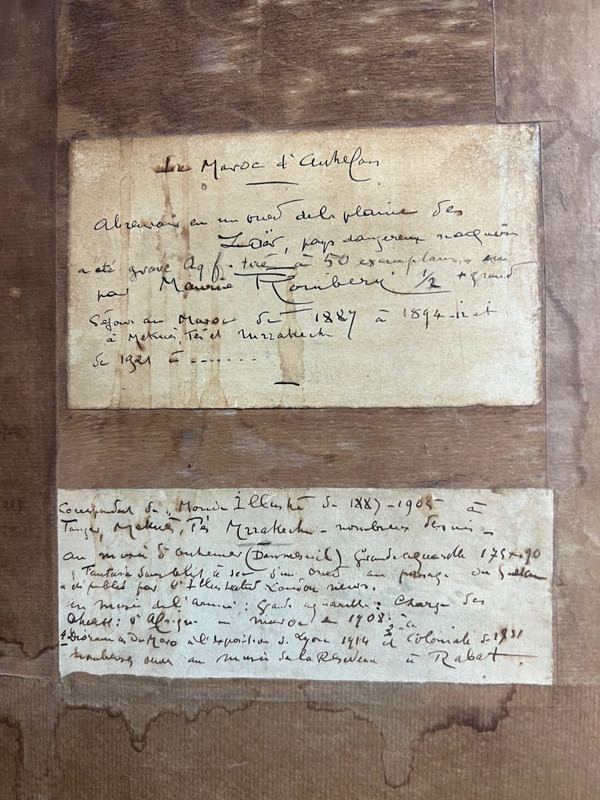 Le Maroc d'Autrefois
Abreuvoir en un oued de la plaine des
Zaër, pays dangereux
a été gravé tiré à 50 exemplaires en
par Maurice Romberg 1/2 + grand
Séjour au Maroc de 1887 à 1894 et
à Meknès, Fès et Marrakech
de 1921 à .......
Correspondant du Monde Illustré de 1887-1905 à
Tanger, Meknès, Fès Marrakech - nombreux dessins -
au musée d'Auxerre Grande aquarelle 175 x 90
Fantasia dans le lit à sec d'un oued au passage du Sultan
a été publié par l'Illustrated London News.
au musée de l'armée : Grande aquarelle : Charge des
Chass: d'Afrique au Maroc en 1908.
4 Dioramas du Maroc à l'exposition de Lyon 1914 et Coloniale de 1931
nombreux au musée de la Résidence à Rabat